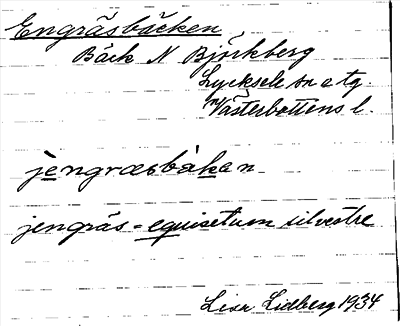 Engräsbäcken
Bäck N Björkberg
Lycksele sn o tg.
Västerbottens l.
jengræsbäken
jengräs = equisetum silvestre
Lisa Lidberg 1934